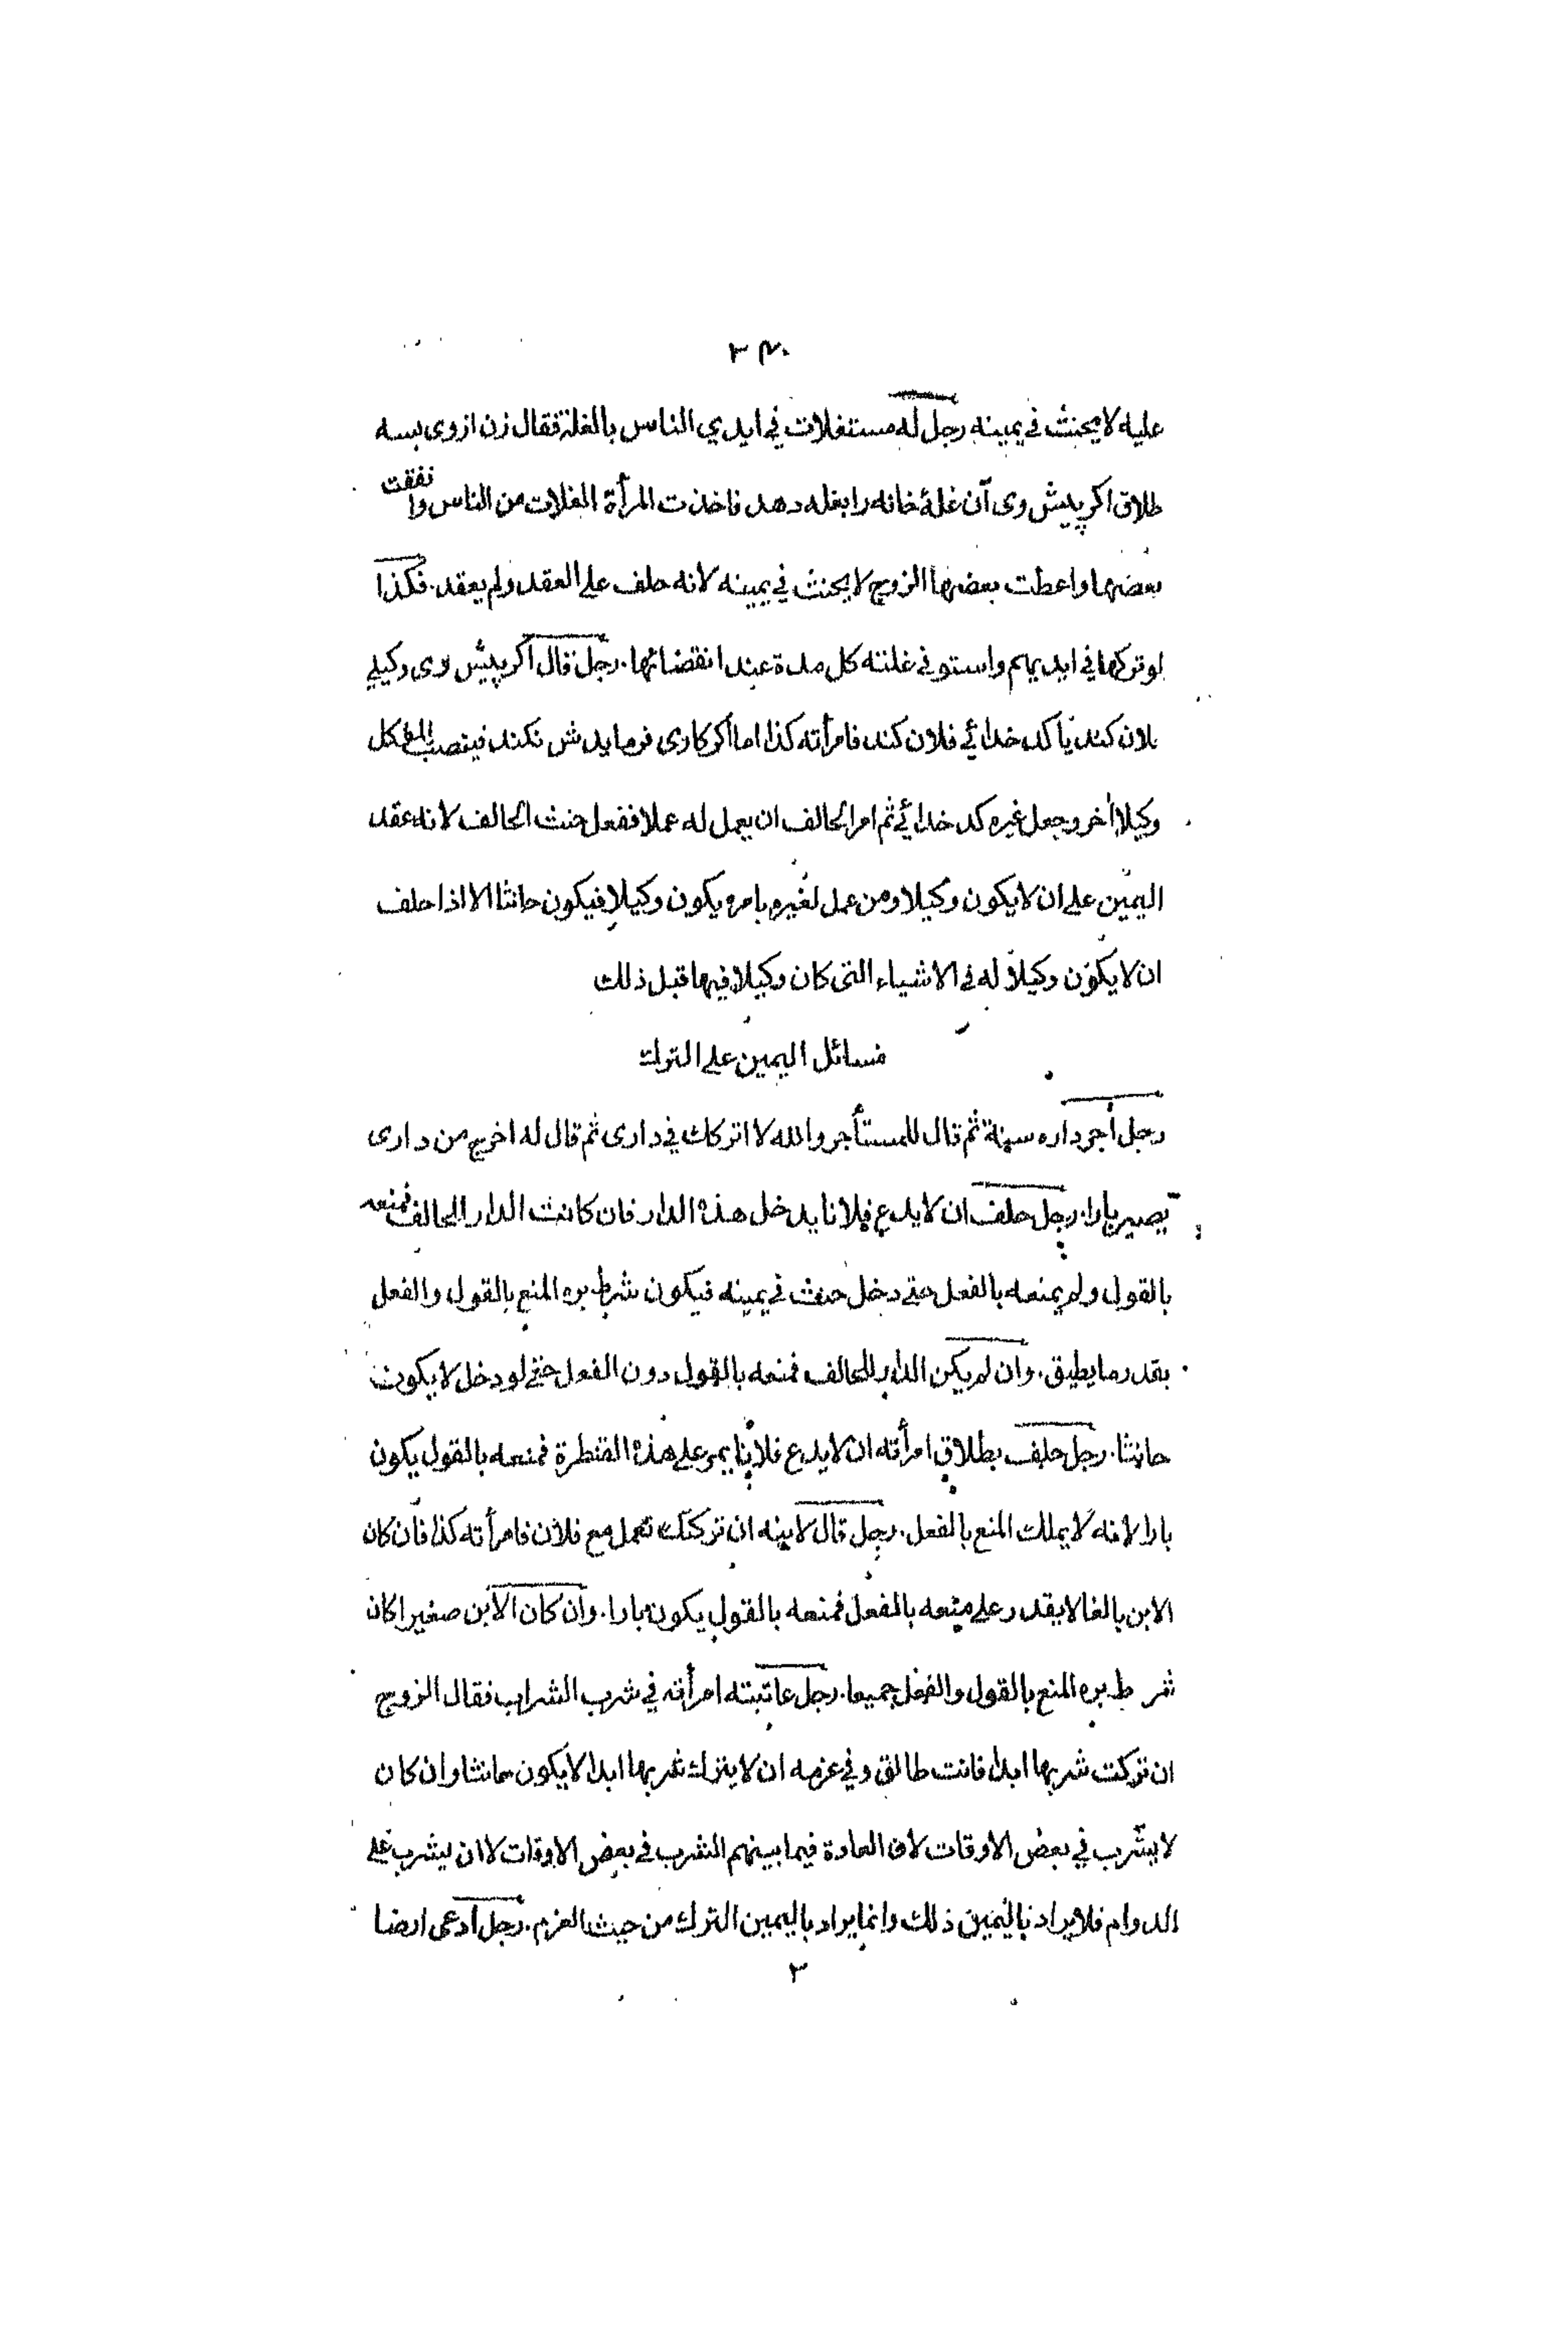 عليه لا يحنث في يمينه رجل له مستغلات في ايدي الناس بالغلة فقال زن ازوى بسه
طلاق اكر پيش وى آن غلۀ خانه را بغله دهد فاخذت المرأة الغلات من الناس وانفقت
بعضها واعطت بعضها الزوج لا يحنث في يمينه لانه حلف على العقد ولم يعقد. فكذا
لو تركها في ايديهم واستوفى غلته كل مدة عند انقضائها. رجل قال اكر پيش وى وكيلي
بلان كند يا كد خدائي فلان كند فامرأته كذا اما اكر كارى فرمايدش نكند فينصب الموكل
وكيلا اخر وجعل غيره كد خدائي ثم امر الحالف ان يعمل له عملا ففعل حنث الحالف لانه عقد
اليمين على ان لا يكون وكيلا ومن عمل لغيره بامره يكون وكيلا فيكون حانثا الا اذا حلف
ان لا يكون وكيلا له في الاشياء التى كان وكيلا فيها قبل ذلك
مسائل اليمين على الترك
رجل أجر داره سنة ثم قال للمستأجر والله لا اتركك في دارى ثم قال له اخرج من دارى
يصير بارا. رجل حلف ان لا يدع فلانا يدخل هذه الدار فان كانت الدار للحالف فمنعه
بالقول ولم يمنعه بالفعل حتى دخل حنث في يمينه فيكون شرط بره المنع بالقول والفعل
بقدر ما يطيق. وان لم يكن الدار للحالف فمنعه بالقول دون الفعل حتى لو دخل لا يكون
حانثا. رجل حلف بطلاق امرأته ان لا يدع فلانا يمر على هذه القنطرة فمنعه بالقول يكون
بارا لانه لا يملك المنع بالفعل. رجل قال لابنه ان تركتك تعمل مع فلان فامرأته كذا فان كان
الابن بالغا لا يقدر على منعه بالفعل فمنعه بالقول يكون بارا. وان كان الابن صغيرا كان
شرط بره المنع بالقول والفعل جميعا. رجل عاتبته امرأته في شرب الشراب فقال الزوج
ان تركت شربها ابدا فانت طالق وفي عزمه ان لا يترك شربها ابدا لا يكون حانثا وان كان
لا يشرب في بعض الاوقات لان العادة فيما بينهم الشرب في بعض الاوقات لا ان يشرب على
الدوام فلا يراد باليمين ذلك وانما يراد باليمين الترك من حيث العزم. رجل ادعى ارضا
٣